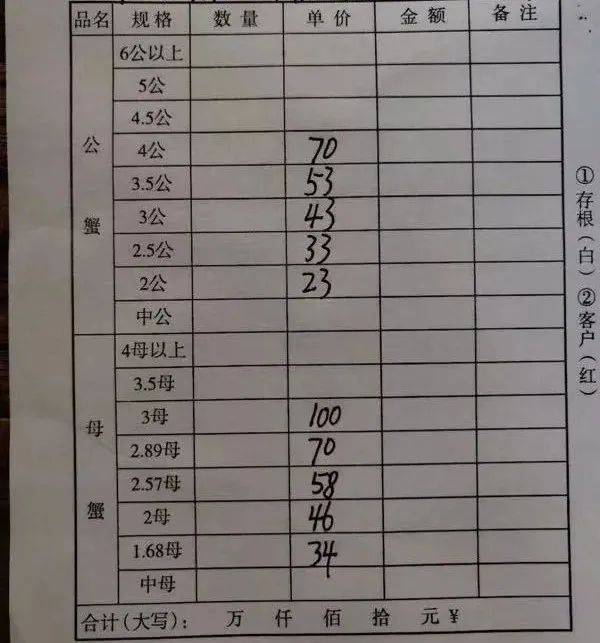 品名 规格 数量 单价 金额 备注
公蟹
6公以上
5公
4.5公
4公 70
3.5公 53
3公 43
2.5公 33
2公 23
中公
母蟹
4母以上
3.5母
3母 100
2.89母 70
2.57母 58
2母 46
1.68母 34
中母
合计(大写): 万 仟 佰 拾 元 ¥
①存根(白)②客户(红)